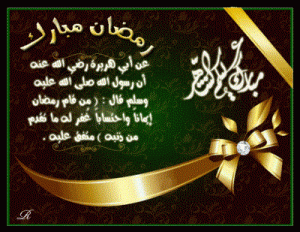 رمضان مبارك
عن أبي هريرة رضي الله عنه
أن رسول الله صلى الله عليه
وسلم قال : ( من قام رمضان
إيمانا واحتسابا غفر له ما تقدم
من ذنبه ) متفق عليه .
مبارك عليكم الشهر
R